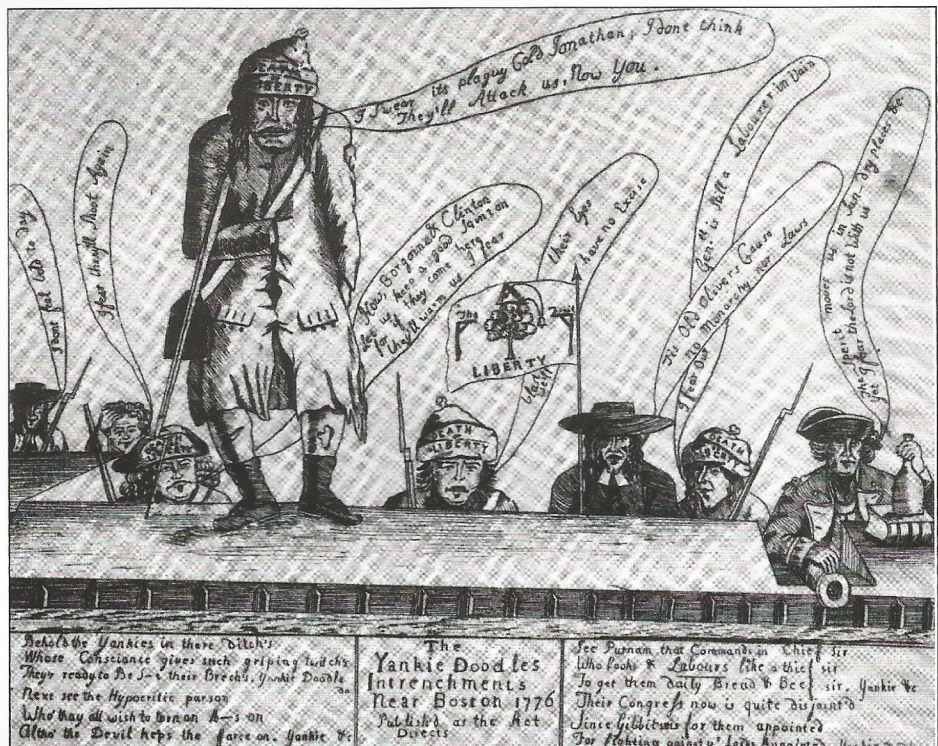 I Swear its plaguy Cold Jonathan; I dont think
They'll Attack us, Now You.
I dont feel bold to day
I fear they'll Shoot Again
Now, Borgoine & Clinton
let us keep a good
for if they come here
they'll warm us I fear
their Eyes
have no Excise
Gen.ll is still a Labourer in Vain
Tis Old Olivers Cause
I fear Our no Monarchy nor Laws
The Spirit moves us in Sun dry places &c
yet I fear the Lord is not With us
DEATH or LIBERTY
The
LIBERTY
DEATH
LIBERTY
DEATH or LIBERTY
Behold the Yankies in there Ditch's
Whose Consciance gives such griping twitch's
They'r ready to Be S-t their Brech's, Yankie Doodle do
Next see the Hypocritic parson
Who thay all wish to turn an A--s on
Altho the Devil keps the farce on. Yankie &c
The
Yankie Doodles
Intrenchments
Near Boston 1776
Publish'd as the Act
Directs
See Putnam that Commands in Chief sir
Who looks & Labours like a thief sir
To get them daily Bread & Beef sir. Yankie &c
Their Congress now is quite disjoint'd
Since Gibbits is for them appointed
For fighting against